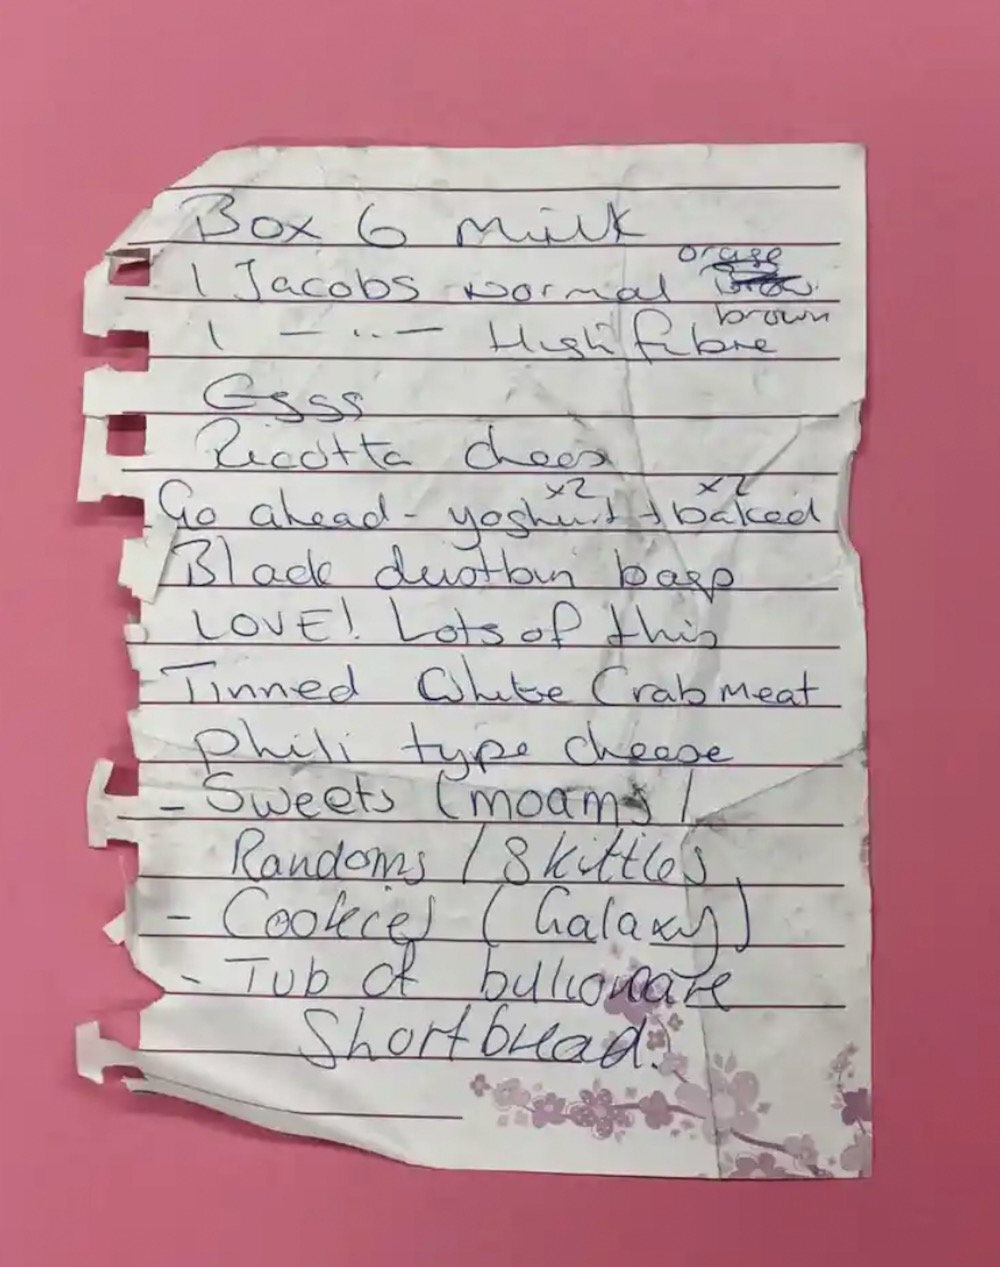 Box 6 Milk
1 Jacobs Normal orage
brown
1 — " — High fibre
Eggs
Ricotta chees
Go ahead - yoghurt x2 + baked x2
Black dustbin bags
LOVE! Lots of this
Tinned White Crabmeat
Phili type cheese
- Sweets (moams /
Randoms / Skittles
- Cookies (Galaxy)
- Tub of billionare
Shortbread.